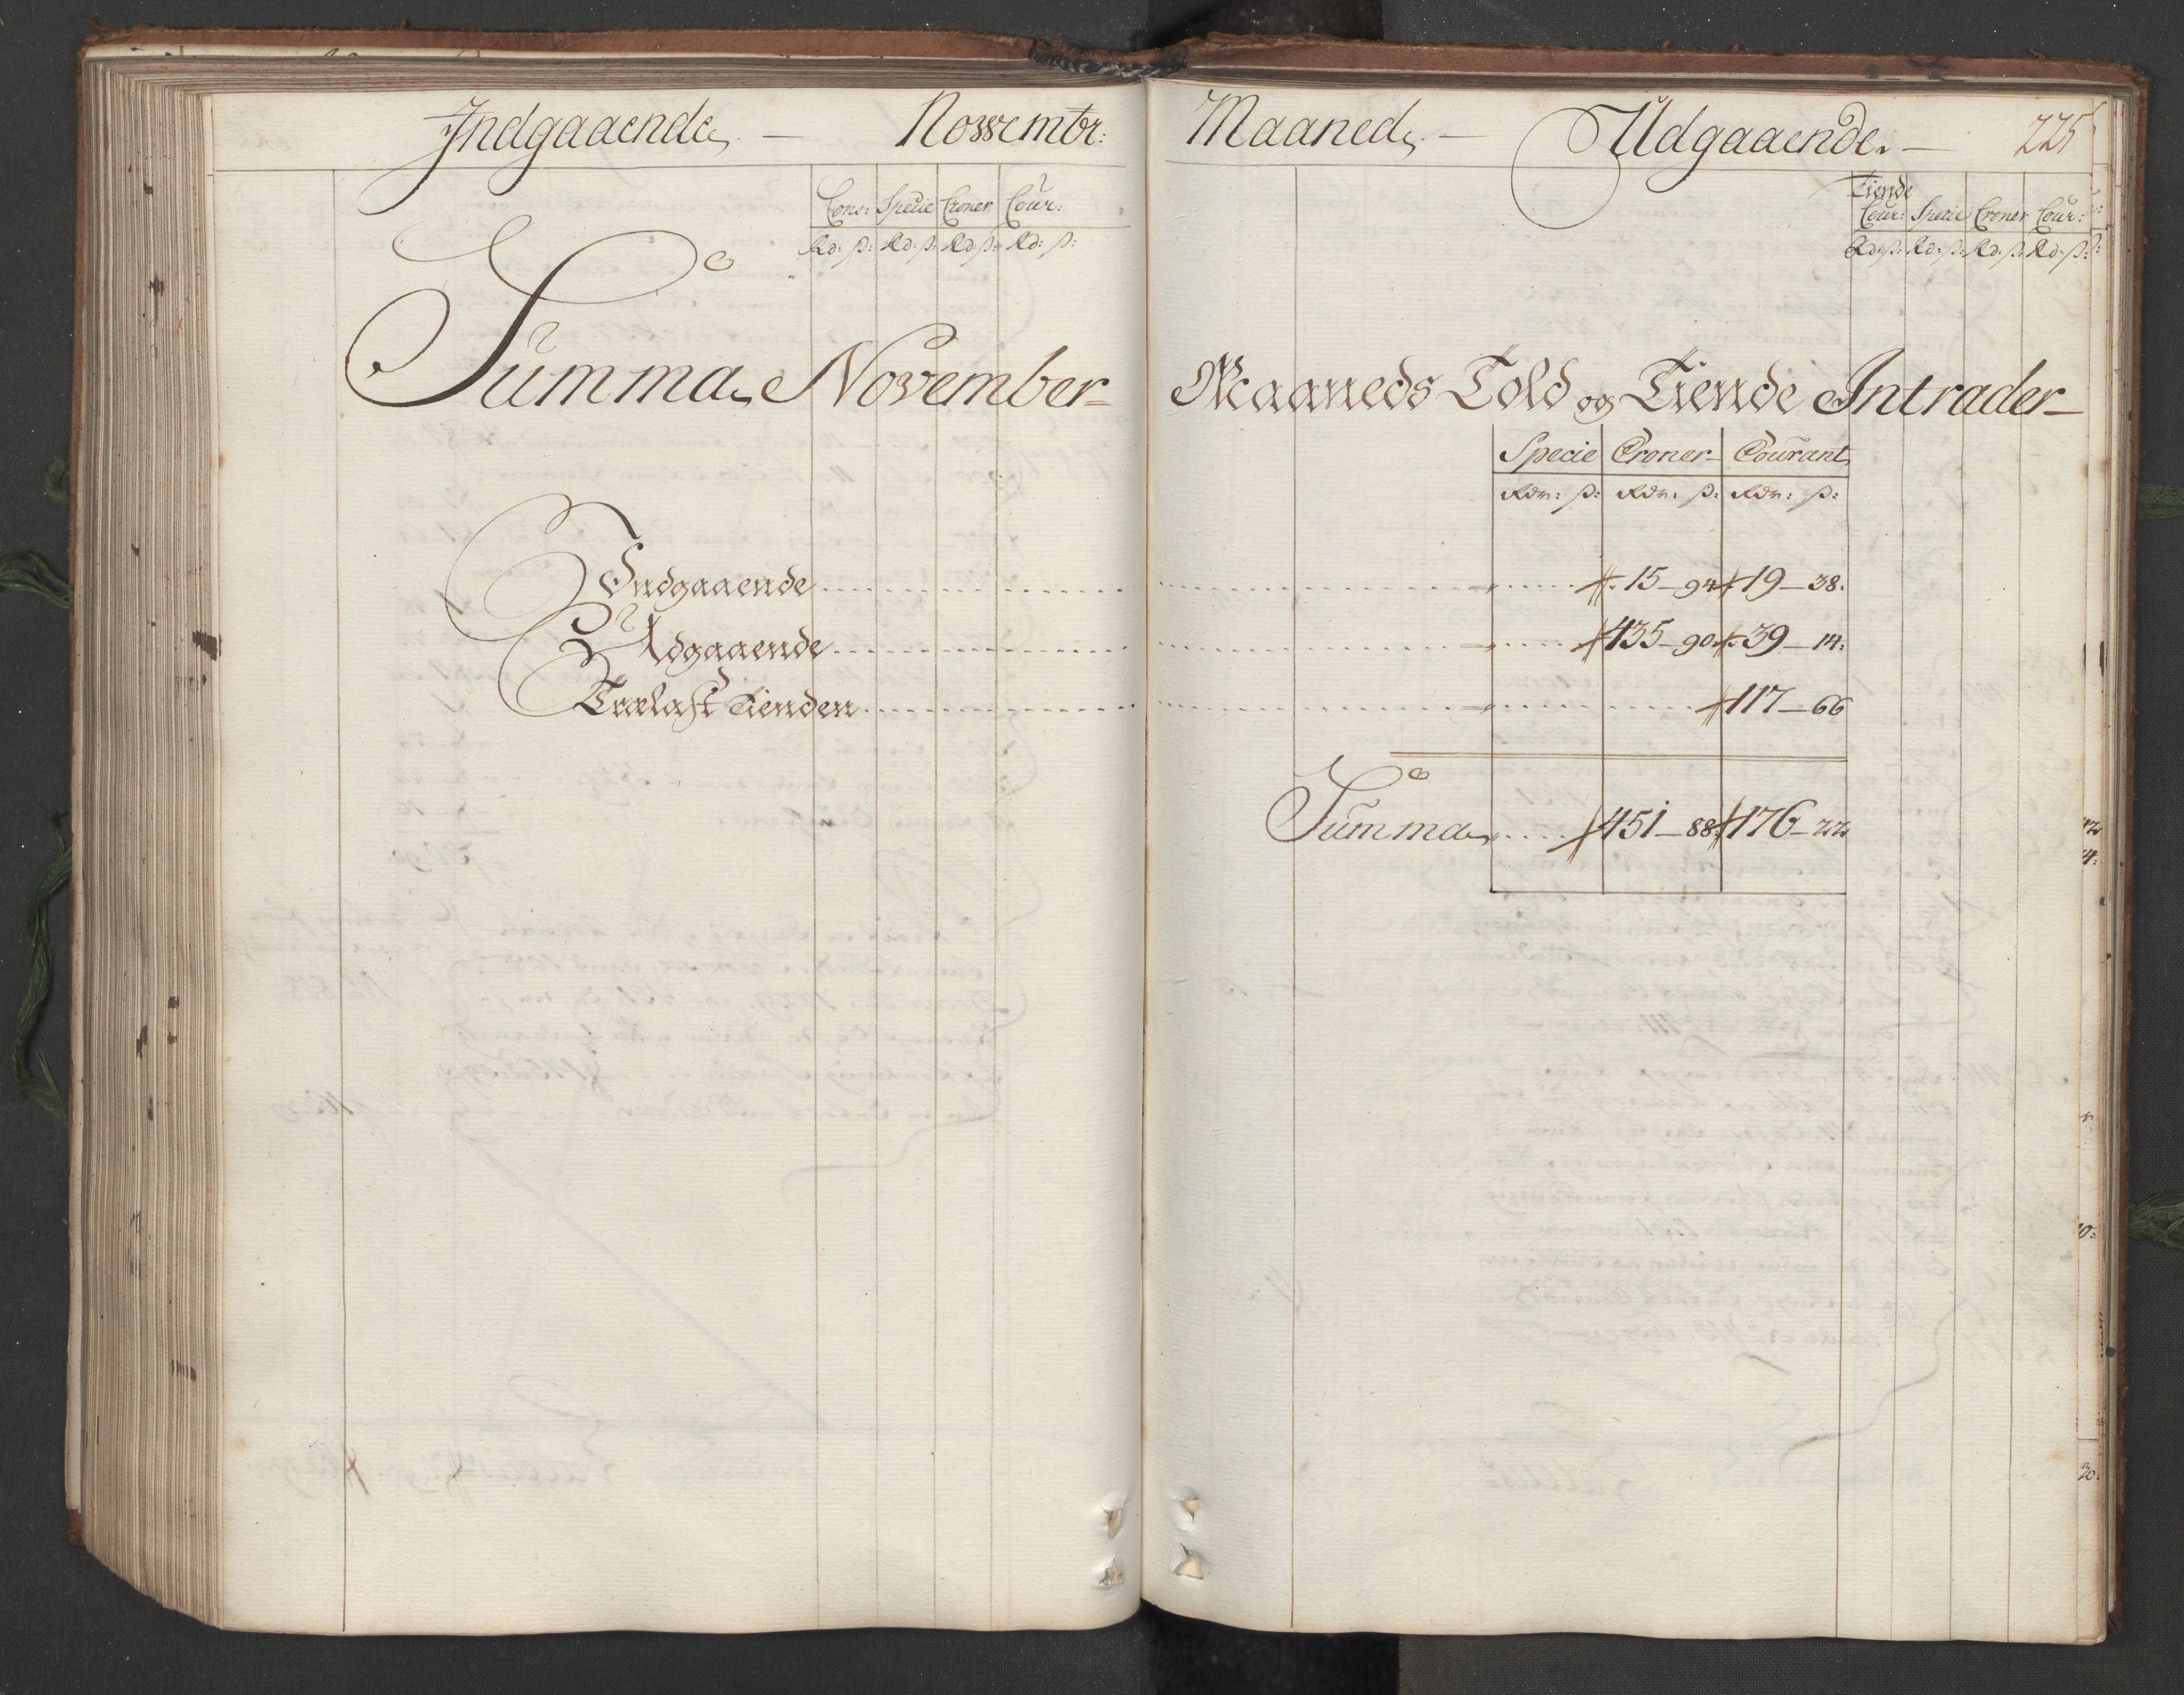 Indgaaende — Novembr: Maaned — Udgaaende — 225
Cons: Specie Croner Cour:
Rd: ß: Rd: ß: Rd: ß: Rd: ß:
Tiende
Cour: Specie Croner Cour:
Rd: ß: Rd: ß: Rd: ß: Rd: ß:
Summa November- Maaneds Told og Tiende Intrader-
Specie Croner Courant
Rdr: ß: Rdr: ß: Rdr: ß:
Indgaaende 15 - 94 19 - 38:
Udgaaende 435 - 90 39 - 14:
Trælast Tienden 117 - 66
Summa 451 - 88 176 - 22